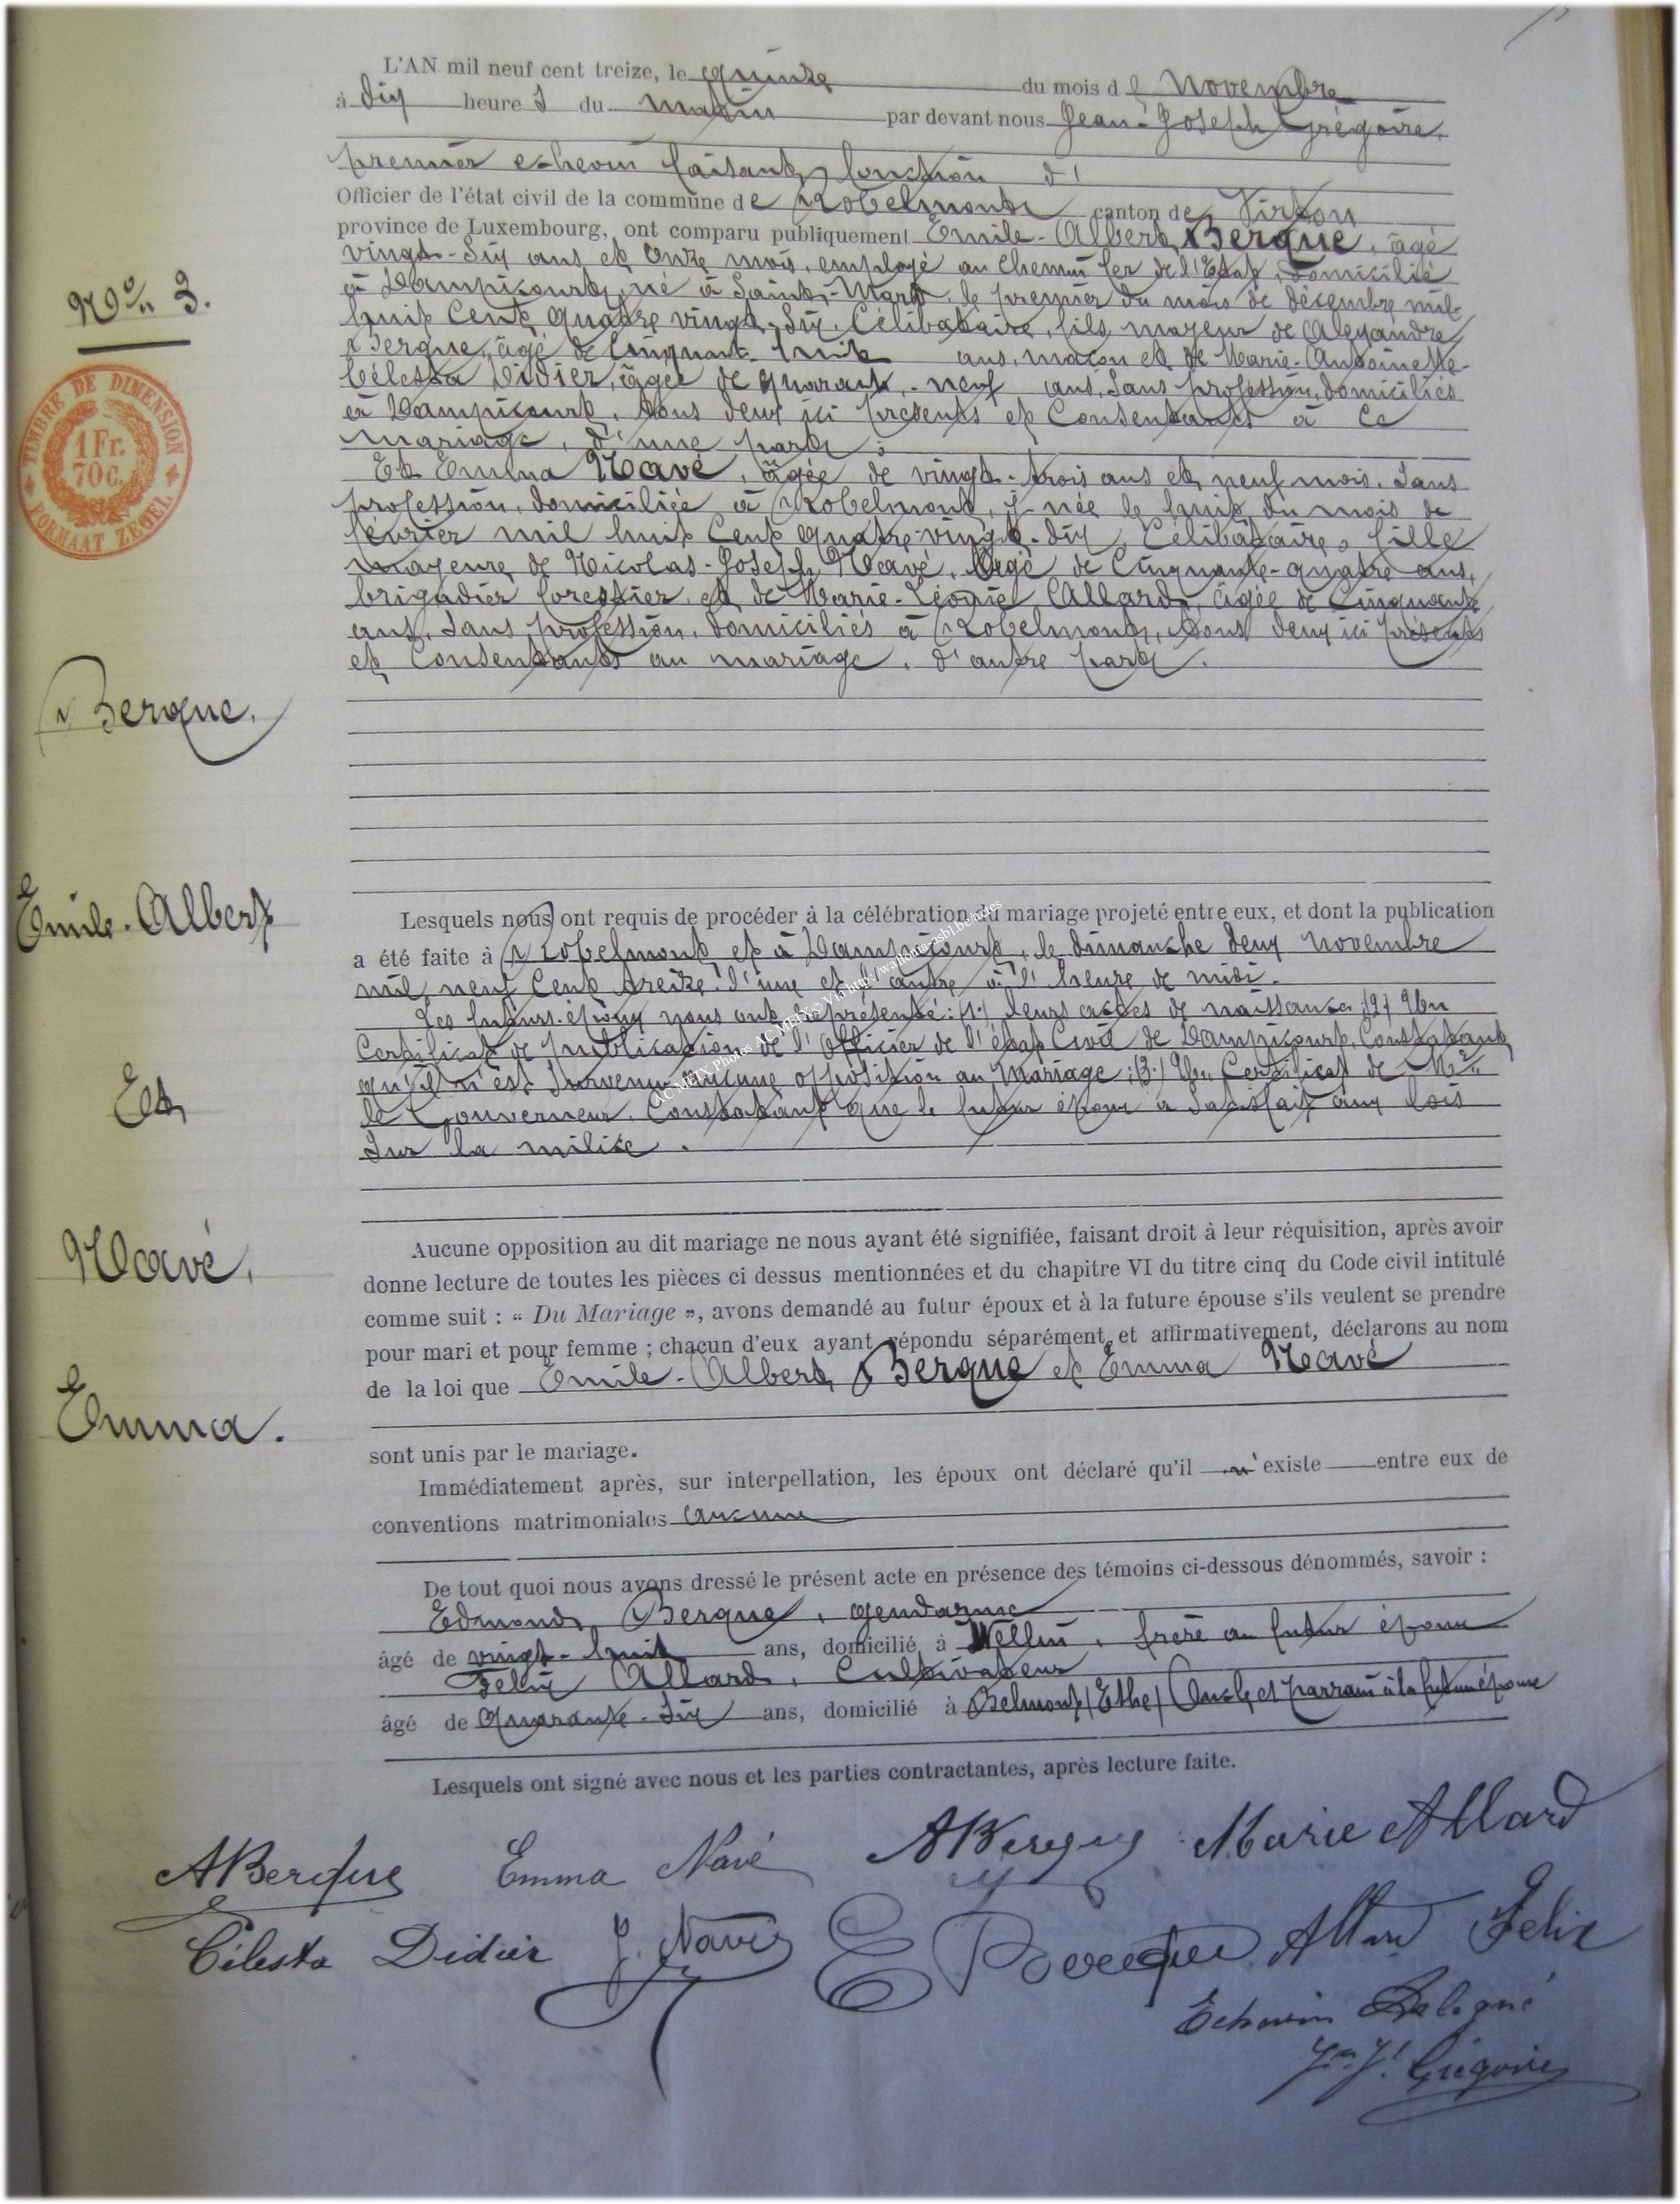 L'AN mil neuf cent treize, le quinze du mois de Novembre
à dix heures du matin par devant nous Jean-Joseph Grégoire,
premier echevin faisant fonction d'
Officier de l'état civil de la commune de Robelmont canton de Virton
province de Luxembourg, ont comparu publiquement Emile-Albert Berque, âgé
vingt-six ans et onze mois, employé au chemin fer de l'Etat, domicilié
à Dampicourt, né à Saint-Mard, le premier du mois de décembre mil-
huit cent quatre vingt-six, célibataire, fils majeur de Alexandre
Berque, âgé de Cinquante-huit ans, maçon et de Marie-Antoinette-
Célesta Didier, âgée de quarante-neuf ans, sans profession, domiciliés
à Dampicourt, tous deux ici présents et consentants à ce
mariage, d'une part;
Et Emma Navé, âgée de vingt-trois ans et neuf mois, sans
profession, domiciliée à Robelmont, y née le huit du mois de
février mil huit cent quatre-vingt-dix, célibataire, fille
majeure de Nicolas-Joseph Navé, âgé de cinquante-quatre ans,
brigadier forestier, et de Marie-Léonie Allard, âgée de cinquante
ans, sans profession, domiciliés à Robelmont, tous deux ici présents
et consentants au mariage, d'autre part.
No 3.
TIMBRE DE DIMENSION
1 Fr.
70 C.
FORMAAT ZEGEL
Berque.
Emile-Albert
Et
Navé,
Emma.
Lesquels nous ont requis de procéder à la célébration du mariage projeté entre eux, et dont la publication
a été faite à Robelmont et à Dampicourt, le dimanche deux novembre
mil neuf cent treize, l'une et l'autre à l'heure de midi.
Les futurs époux nous ont représenté: (1.) leurs actes de naissance (2) Un
Certificat de publication de l'officier de l'état civil de Dampicourt, constatant
qu'il n'est survenu aucune opposition au mariage; (3.) Un Certificat de Mr
le Gouverneur, constatant que le futur époux a satisfait aux lois
sur la milice.
AC MEIX Photos AC MEIX © Via http://wallonia-asbl.be/actes
Aucune opposition au dit mariage ne nous ayant été signifiée, faisant droit à leur réquisition, après avoir
donne lecture de toutes les pièces ci dessus mentionnées et du chapitre VI du titre cinq du Code civil intitulé
comme suit : « Du Mariage », avons demandé au futur époux et à la future épouse s'ils veulent se prendre
pour mari et pour femme ; chacun d'eux ayant répondu séparément et affirmativement, déclarons au nom
de la loi que Emile-Albert Berque et Emma Navé
sont unis par le mariage.
Immédiatement après, sur interpellation, les époux ont déclaré qu'il n'existe entre eux de
conventions matrimoniales aucune
De tout quoi nous avons dressé le présent acte en présence des témoins ci-dessous dénommés, savoir :
Edmond Berque, gendarme
âgé de vingt-huit ans, domicilié à Wellin, frère au futur époux
Felix Allard, Cultivateur
âgé de quarante-six ans, domicilié à Belmont (Ethe) Oncle et parrain à la future épouse
Lesquels ont signé avec nous et les parties contractantes, après lecture faite.
ABerque Emma Navé ABerque Marie Allard
Célesta Didier J. Navé E Berque Allard Felix
Echevin Délégué
Jn Jh Grégoire